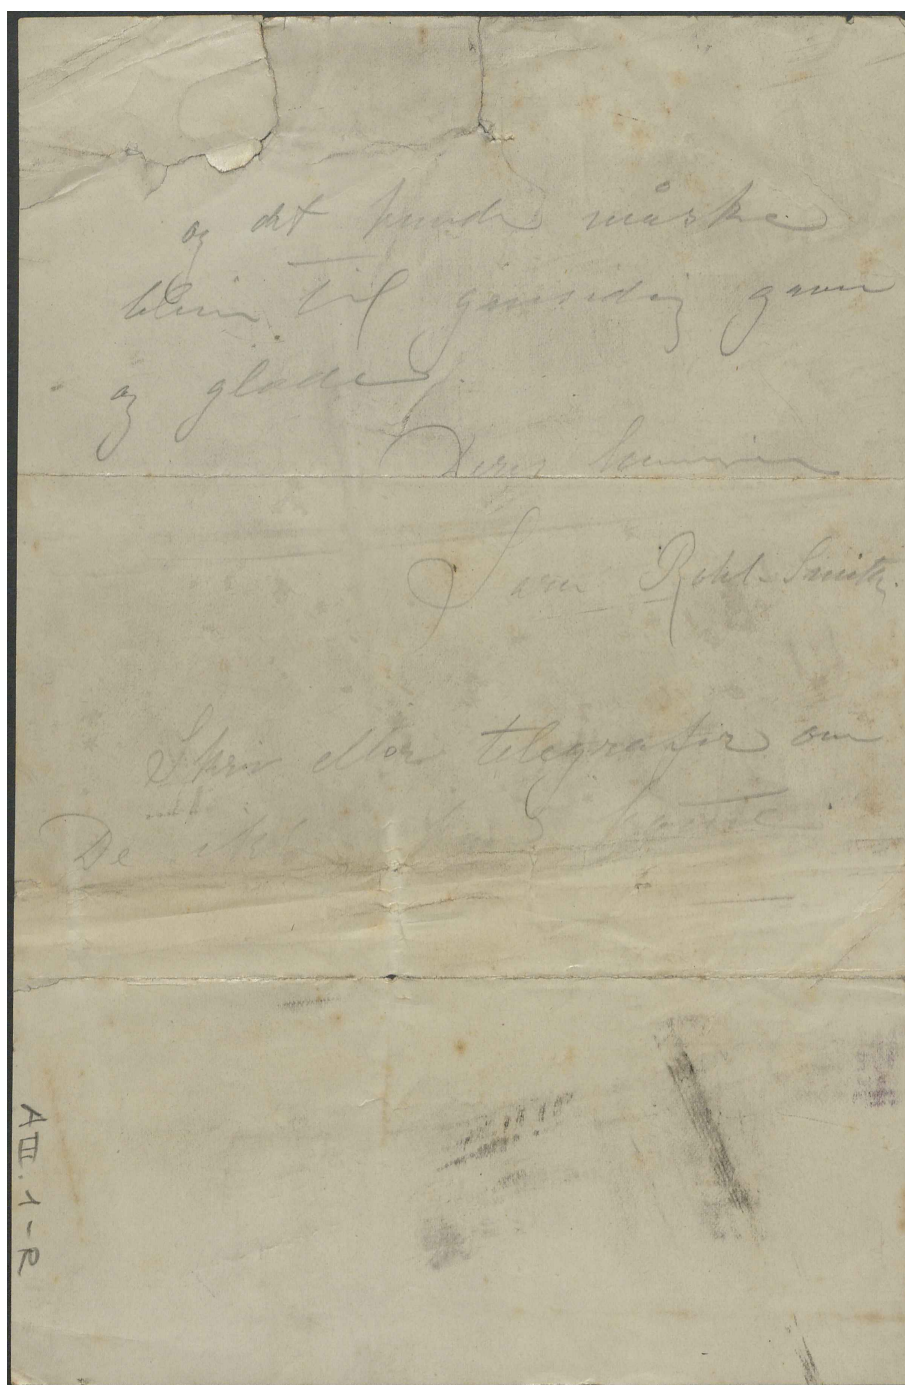 og det kunde måske
blive til gensidig gavn
og glæde
Deres hengivne
Rohl-Smith.
Skriv eller telegrafer om
De ikke
A III. 1-R